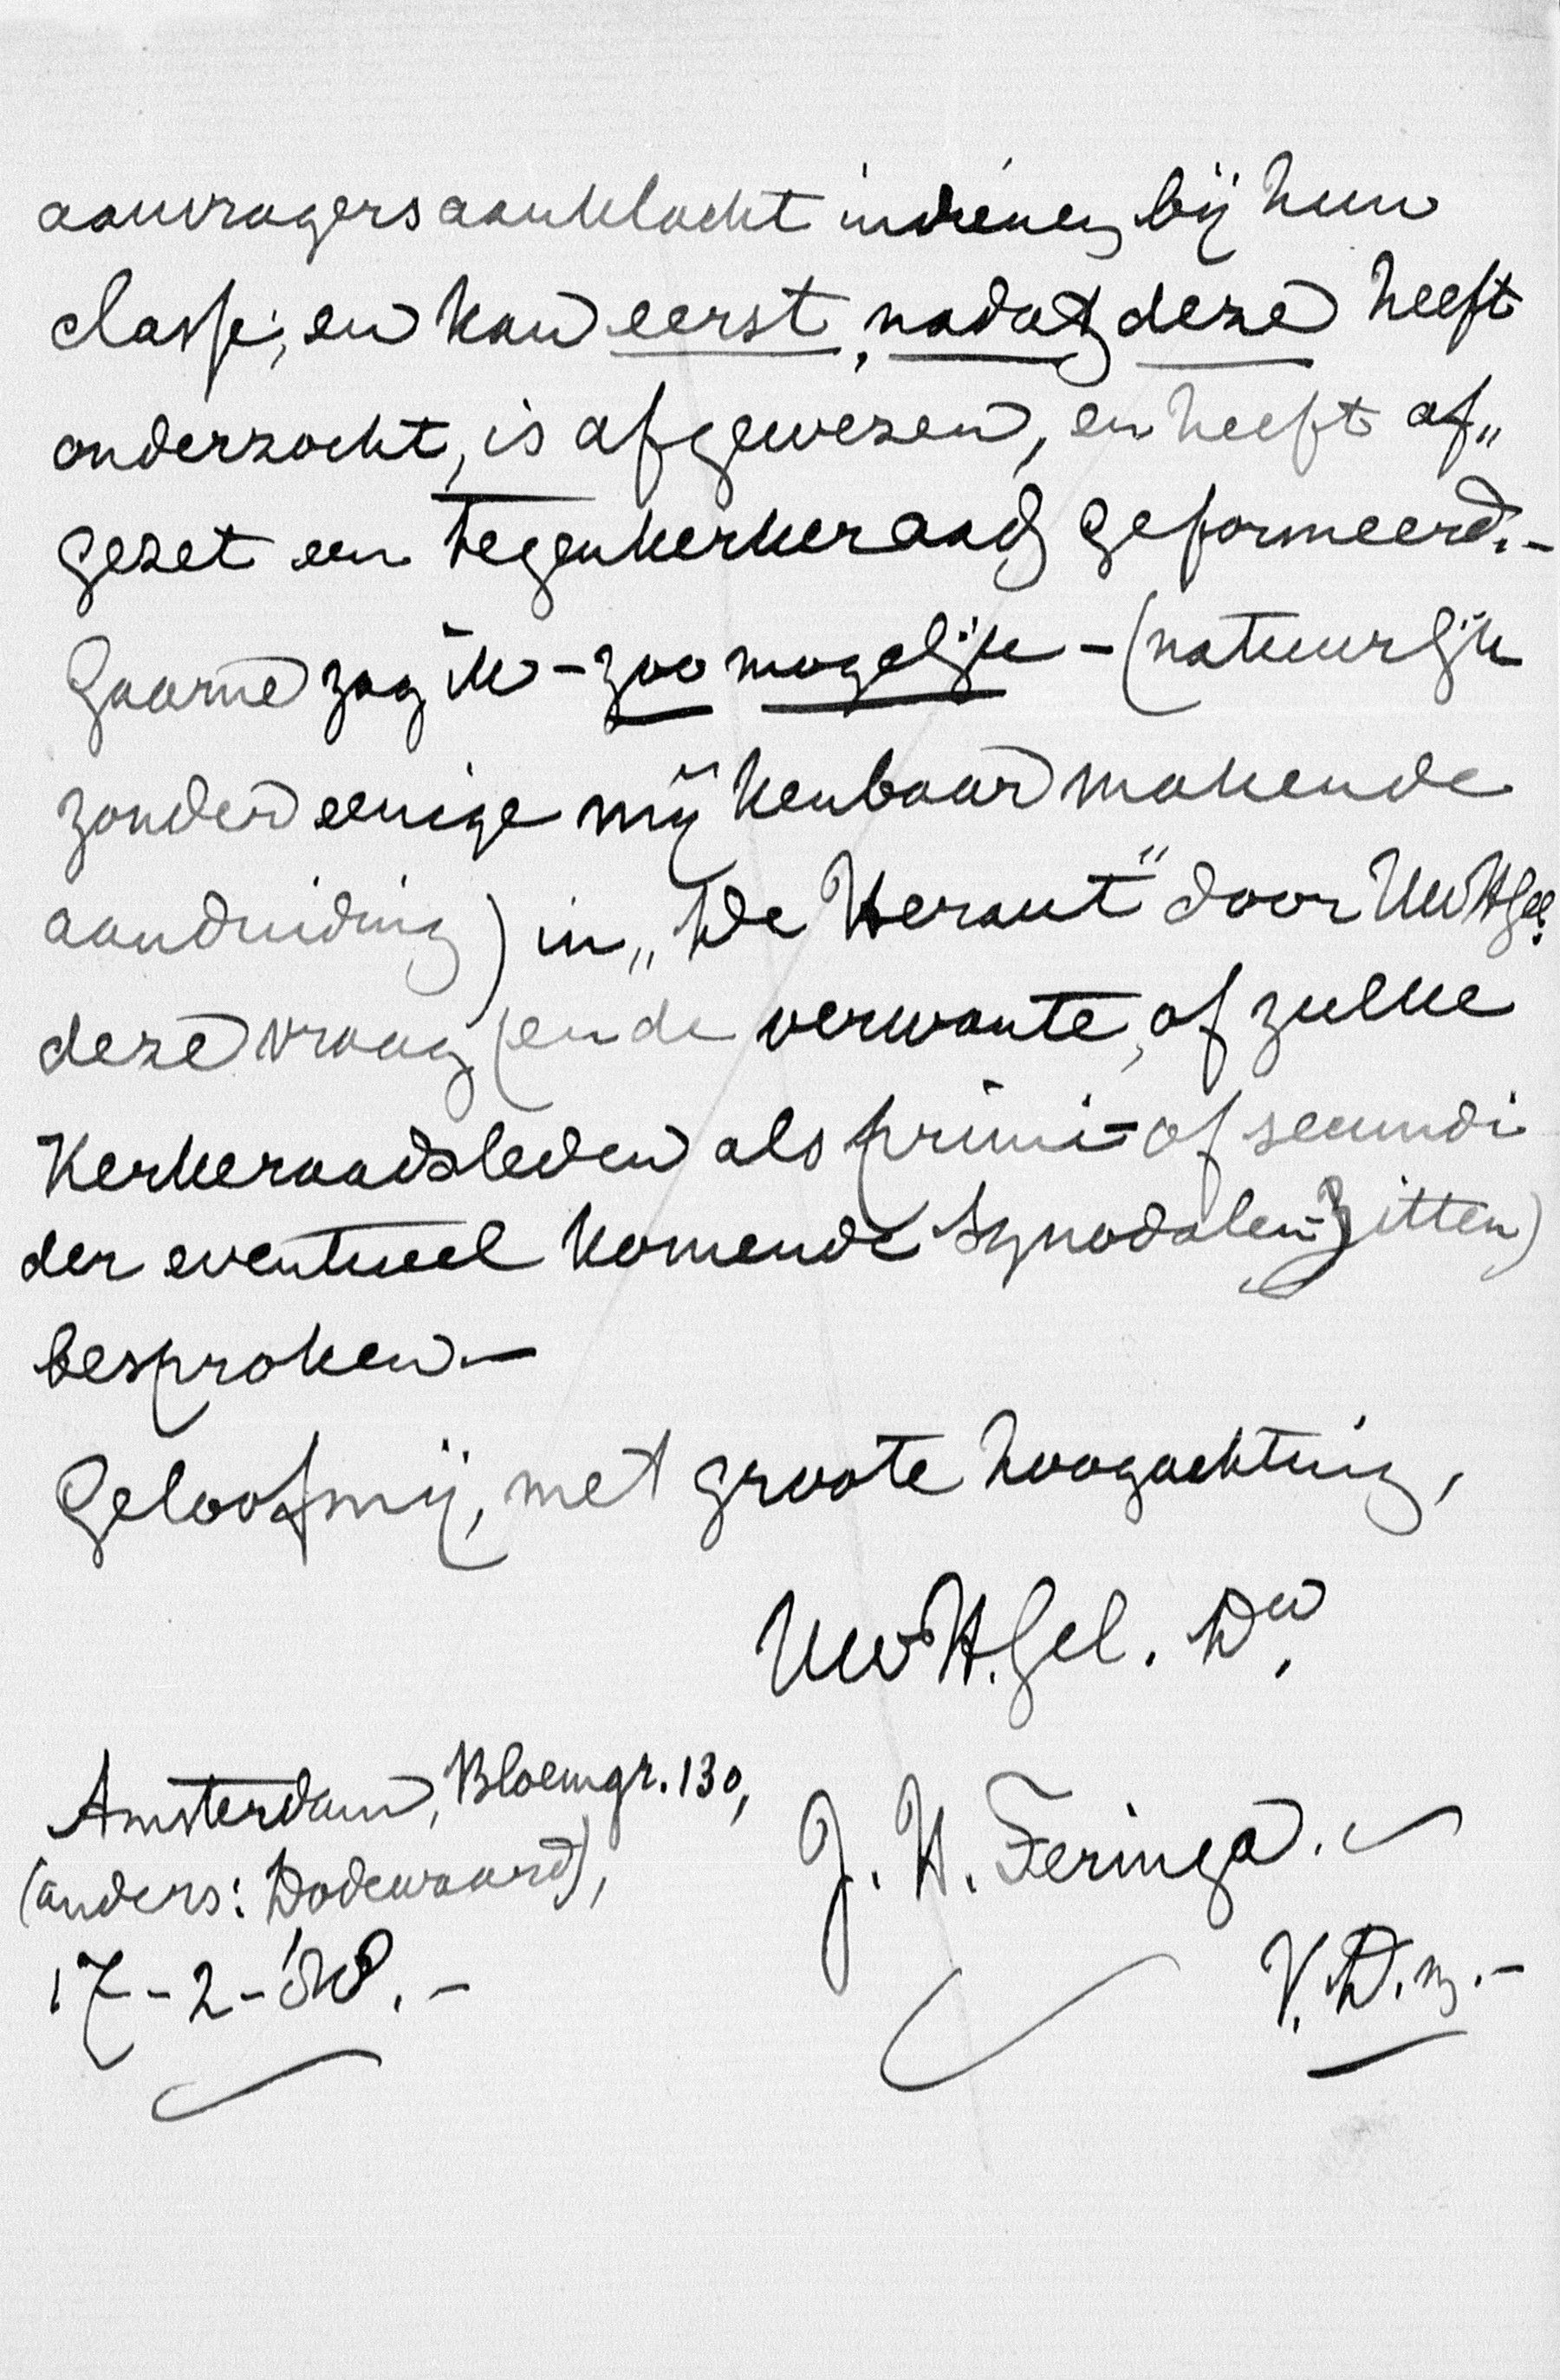 aanvragers aanklacht indienen bij hun
classe; en kan eerst, nadat deze heeft
onderzocht, is afgewezen, en heeft af„
gezet een tegenkerkeraad geformeerd.-
Gaarne zag ik - zoo mogelijk - (natuurlijk
zonder eenige mij kenbaar makende
aanduiding) in „De Heraut" door UwHGel.
deze vraag (en de verwante, of zulke
Kerkeraadsleden als primi- of secundi
der eventueel komende Synodalen zitten)
besproken.—
Geloof mij, met groote hoogachting,
UwH.Gel. Dw.
Amsterdam, Bloemgr. 130,
(anders: Dodewaard),
17-2-'88.-
J. H. Feringa.
V.D.m.-